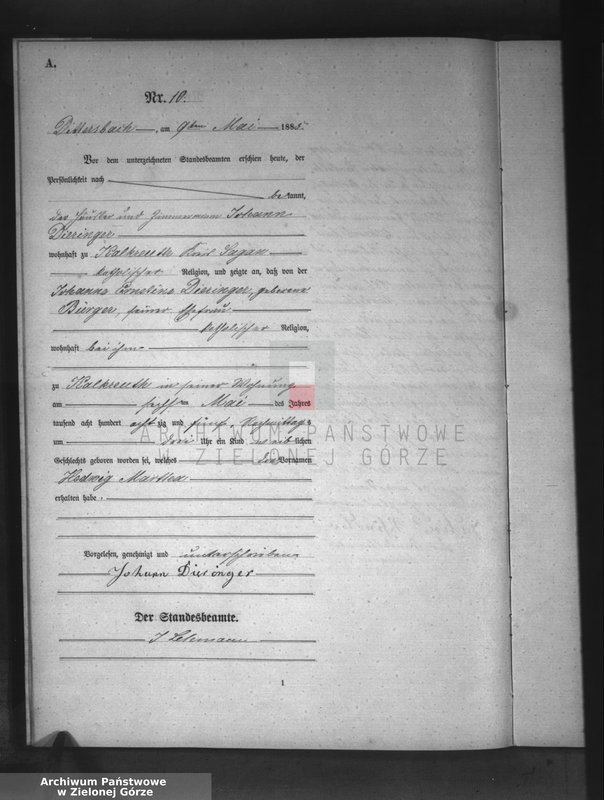 A.
Nr. 10.
Dittersbach, am 9ten Mai 1885.
Vor dem unterzeichneten Standesbeamten erschien heute, der
Persönlichkeit nach
bekannt,
der Häusler und Zimmermann Johann
Dieringer
wohnhaft zu Kalkreuth Kreis Sagan
katholischer Religion, und zeigte an, daß von der
Johanna Ernestine Dieringer, geborene
Bürger, seiner Ehefrau
katholischer Religion,
wohnhaft bei ihm
zu Kalkreuth in seiner Wohnung
am sechsten Mai des Jahres
tausend acht hundert achtzig und fünf, Nachmittags
um drei Uhr ein Kind weiblichen
Geschlechts geboren worden sei, welches den Vornamen
Hedwig Martha
erhalten habe.
Vorgelesen, genehmigt und unterschrieben
Johann Dieringer
Der Standesbeamte.
J Lehmann
1
ARCHIWUM PAŃSTWOWE
W ZIELONEJ GÓRZE
Archiwum Państwowe
w Zielonej Górze